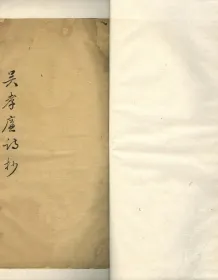 吴孝廉诗抄